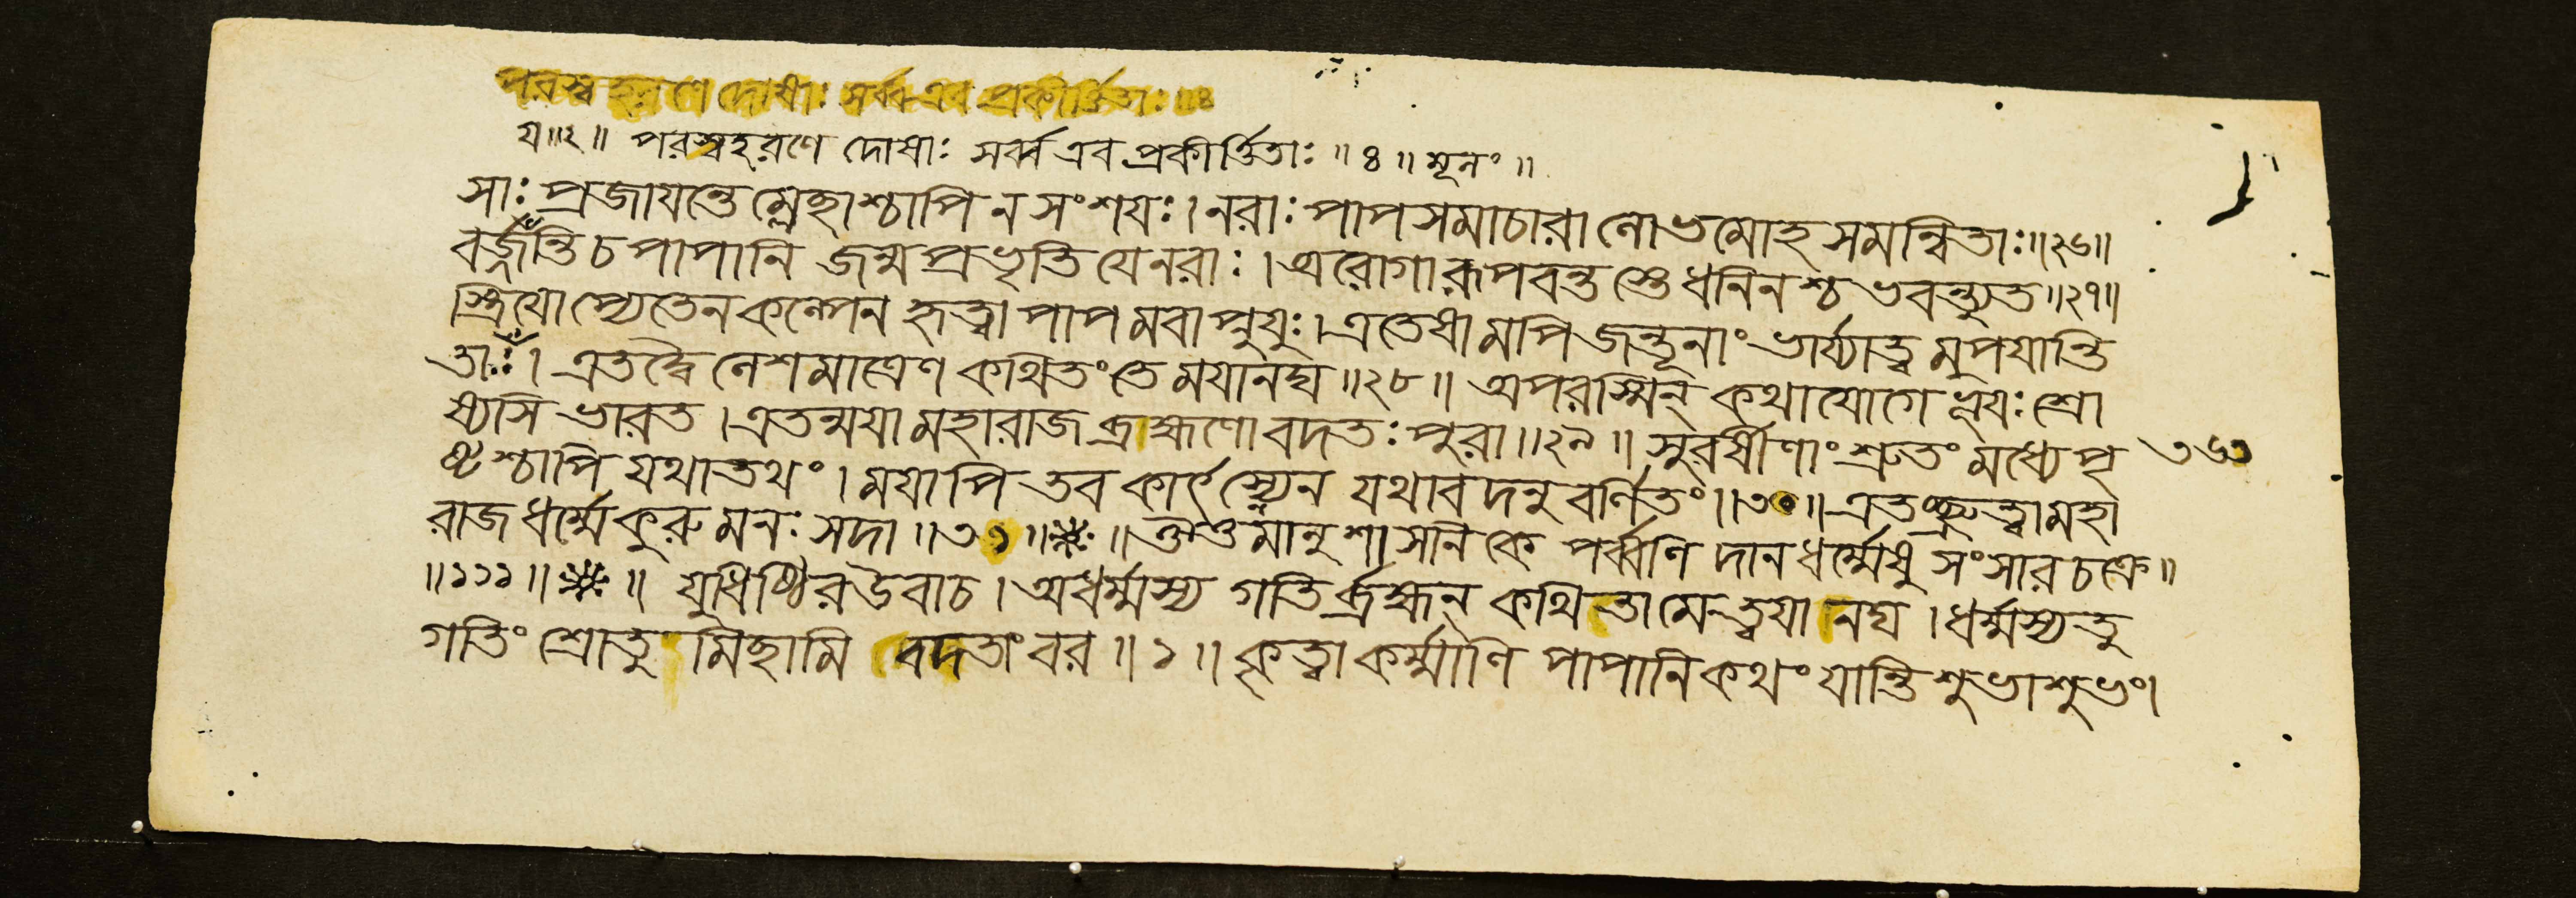 পরস্বহরণে দোষাঃ সর্ব্ব এব প্রকীর্ত্তিতাঃ॥৪
য॥২॥ পরস্বহরণে দোষাঃ সর্ব্ব এব প্রকীর্ত্তিতাঃ॥৪॥মূলং॥
সাঃ প্রজাযন্তে ম্লেচ্ছাশ্চাপি ন সংশযঃ। নরাঃ পাপসমাচারা লোভমোহসমন্বিতাঃ॥২৬॥
বর্জ্জযন্তি চ পাপানি জন্মপ্রভৃতি যে নরাঃ। অরোগা রূপবন্তস্তে ধনিনশ্চ ভবন্ত্যুত॥২৭॥
স্ত্রিযোপ্যেতেন কল্পেন হৃত্বা পাপমবাপ্নুযুঃ। এতেষামপি জন্তূনাং ভার্য্যাত্বমুপযান্তি
তাঃ। এতদ্বৈ লেশমাত্রেণ কথিতং তে মযানঘ॥২৮॥ অপরস্মিন্ কথাযোগে ভূযঃ শ্রো
ষ্যসি ভারত। এতন্মযা মহারাজ ব্রাহ্মণো বদতঃ পুরা॥২৯॥ সুরর্ষীণাং শ্রুতং মধ্যে পৃ ৩৬৩
ষ্টশ্চাপি যথাতথং। মযাপি তব কার্ৎস্ন্যেন যথাবদনুবর্ণিতং॥৩০॥ এতৎশ্রুত্বা মহা
রাজ ধর্ম্মে কুরু মনঃ সদা॥৩১॥※॥ ঔঁমানুশাসনিকে পর্ব্বণি দানধর্ম্মেষু সংসারচক্রে॥
॥১১১॥※॥ যুধিষ্ঠির উবাচ। অধর্ম্মস্য গতির্ব্রহ্মন্ কথিতা মে ত্বযানঘ। ধর্ম্মস্য তু
গতিং শ্রোতুমিচ্ছামি বদতাং বর॥১॥ কৃত্বা কর্ম্মাণি পাপানি কথং যান্তি শুভাশুভং।